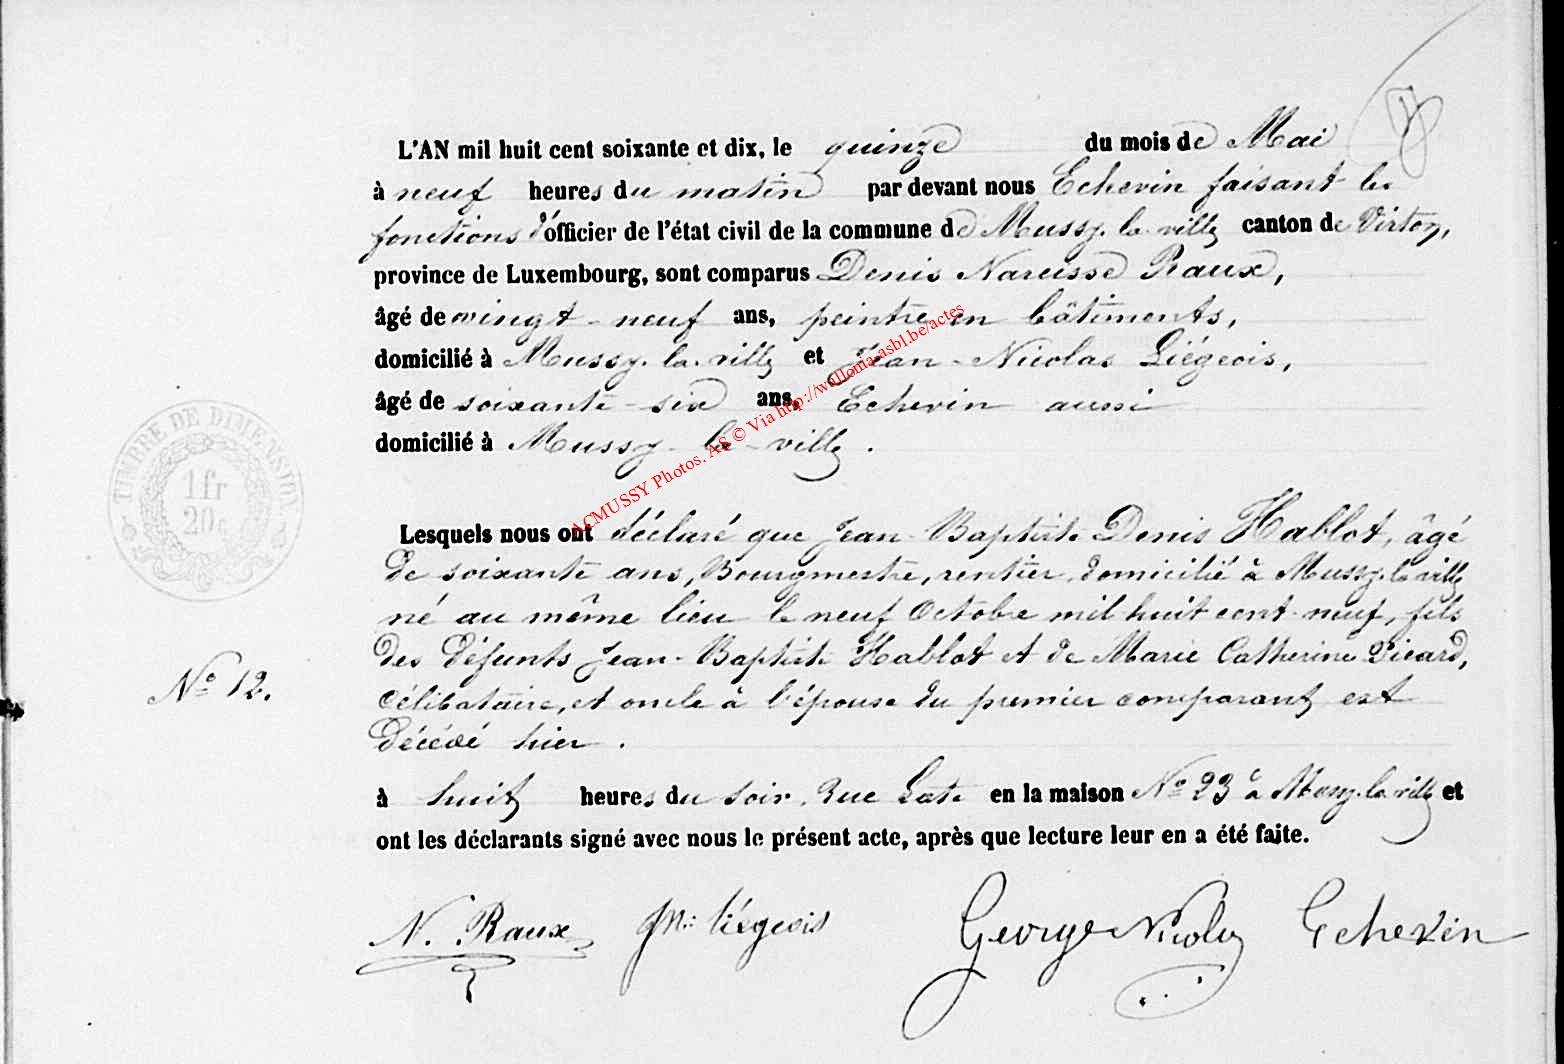 L'AN mil huit cent soixante et dix, le quinze du mois de Mai
à neuf heures du matin par devant nous Echevin faisant les
fonctions d'officier de l'état civil de la commune de Mussy-la-ville canton de Virton,
province de Luxembourg, sont comparus Denis Narcisse Raux,
âgé de vingt-neuf ans, peintre en bâtiments,
domicilié à Mussy-la-ville et Jean-Nicolas Liégeois,
âgé de soixante-six ans, Echevin aussi
domicilié à Mussy-la-ville.
ACMUSSY Photos. AS © Via http://walloma-asbl.be/actes
TIMBRE DE DIMENSION
1 fr
20c
Lesquels nous ont déclaré que Jean-Baptiste Denis Hablot, âgé
de soixante ans, Bourgmestre, rentier, domicilié à Mussy-la-ville
né au même lieu le neuf Octobre mil huit cent-neuf, fils
des défunts Jean-Baptiste Hablot et de Marie Catherine Picard,
N° 12.
célibataire, et oncle à l'épouse du premier comparant, est
décédé hier.
à huit heures du soir, Rue Late en la maison N° 23 à Mussy-la-ville et
ont les déclarants signé avec nous le présent acte, après que lecture leur en a été faite.
N. Raux Jn. liégeois George Nicolas Echevin